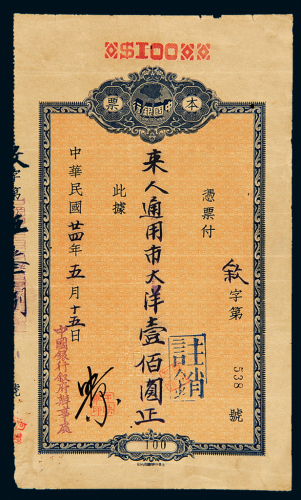 $100
本票
中國銀行
憑票付
來人通用市大洋壹佰圓正
此據
敘字第538號
中華民國廿四年五月十五日
中國銀行敘府辦事處
註銷
100
字第
號